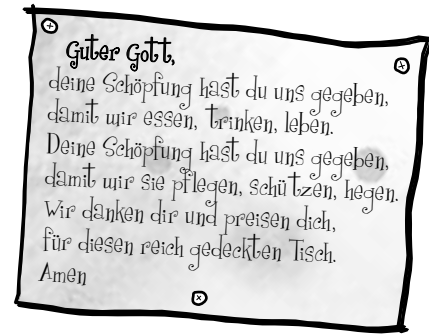 Guter Gott,
deine Schöpfung hast du uns gegeben,
damit wir essen, trinken, leben.
Deine Schöpfung hast du uns gegeben,
damit wir sie pflegen, schützen, hegen.
Wir danken dir und preisen dich,
für diesen reich gedeckten Tisch.
Amen